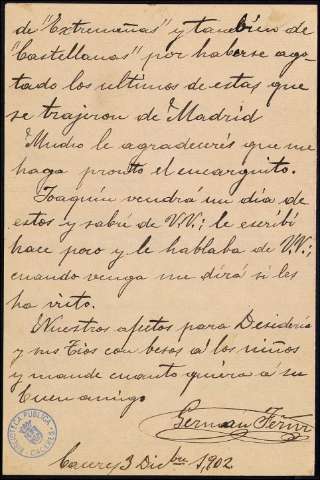 de "Extremeñas" y también de
"Castellanas" por haberse ago-
tado los ultimos de estas que
se trajeron de Madrid
Mucho le agradeceré que me
haga pronto el encarguito.
Joaquín vendrá un dia de
estos y sabré de V.V.; le escribí
hace poco y le hablaba de V.V.;
cuando venga me dirá si les
ha visto.
Nuestros afectos para Desideria
y sus Tios con besos á los niños
y mande cuanto quiera á su
buen amigo
Germán
3 Dicbre 1,902
BIBLIOTECA PUBLICA
CACERES